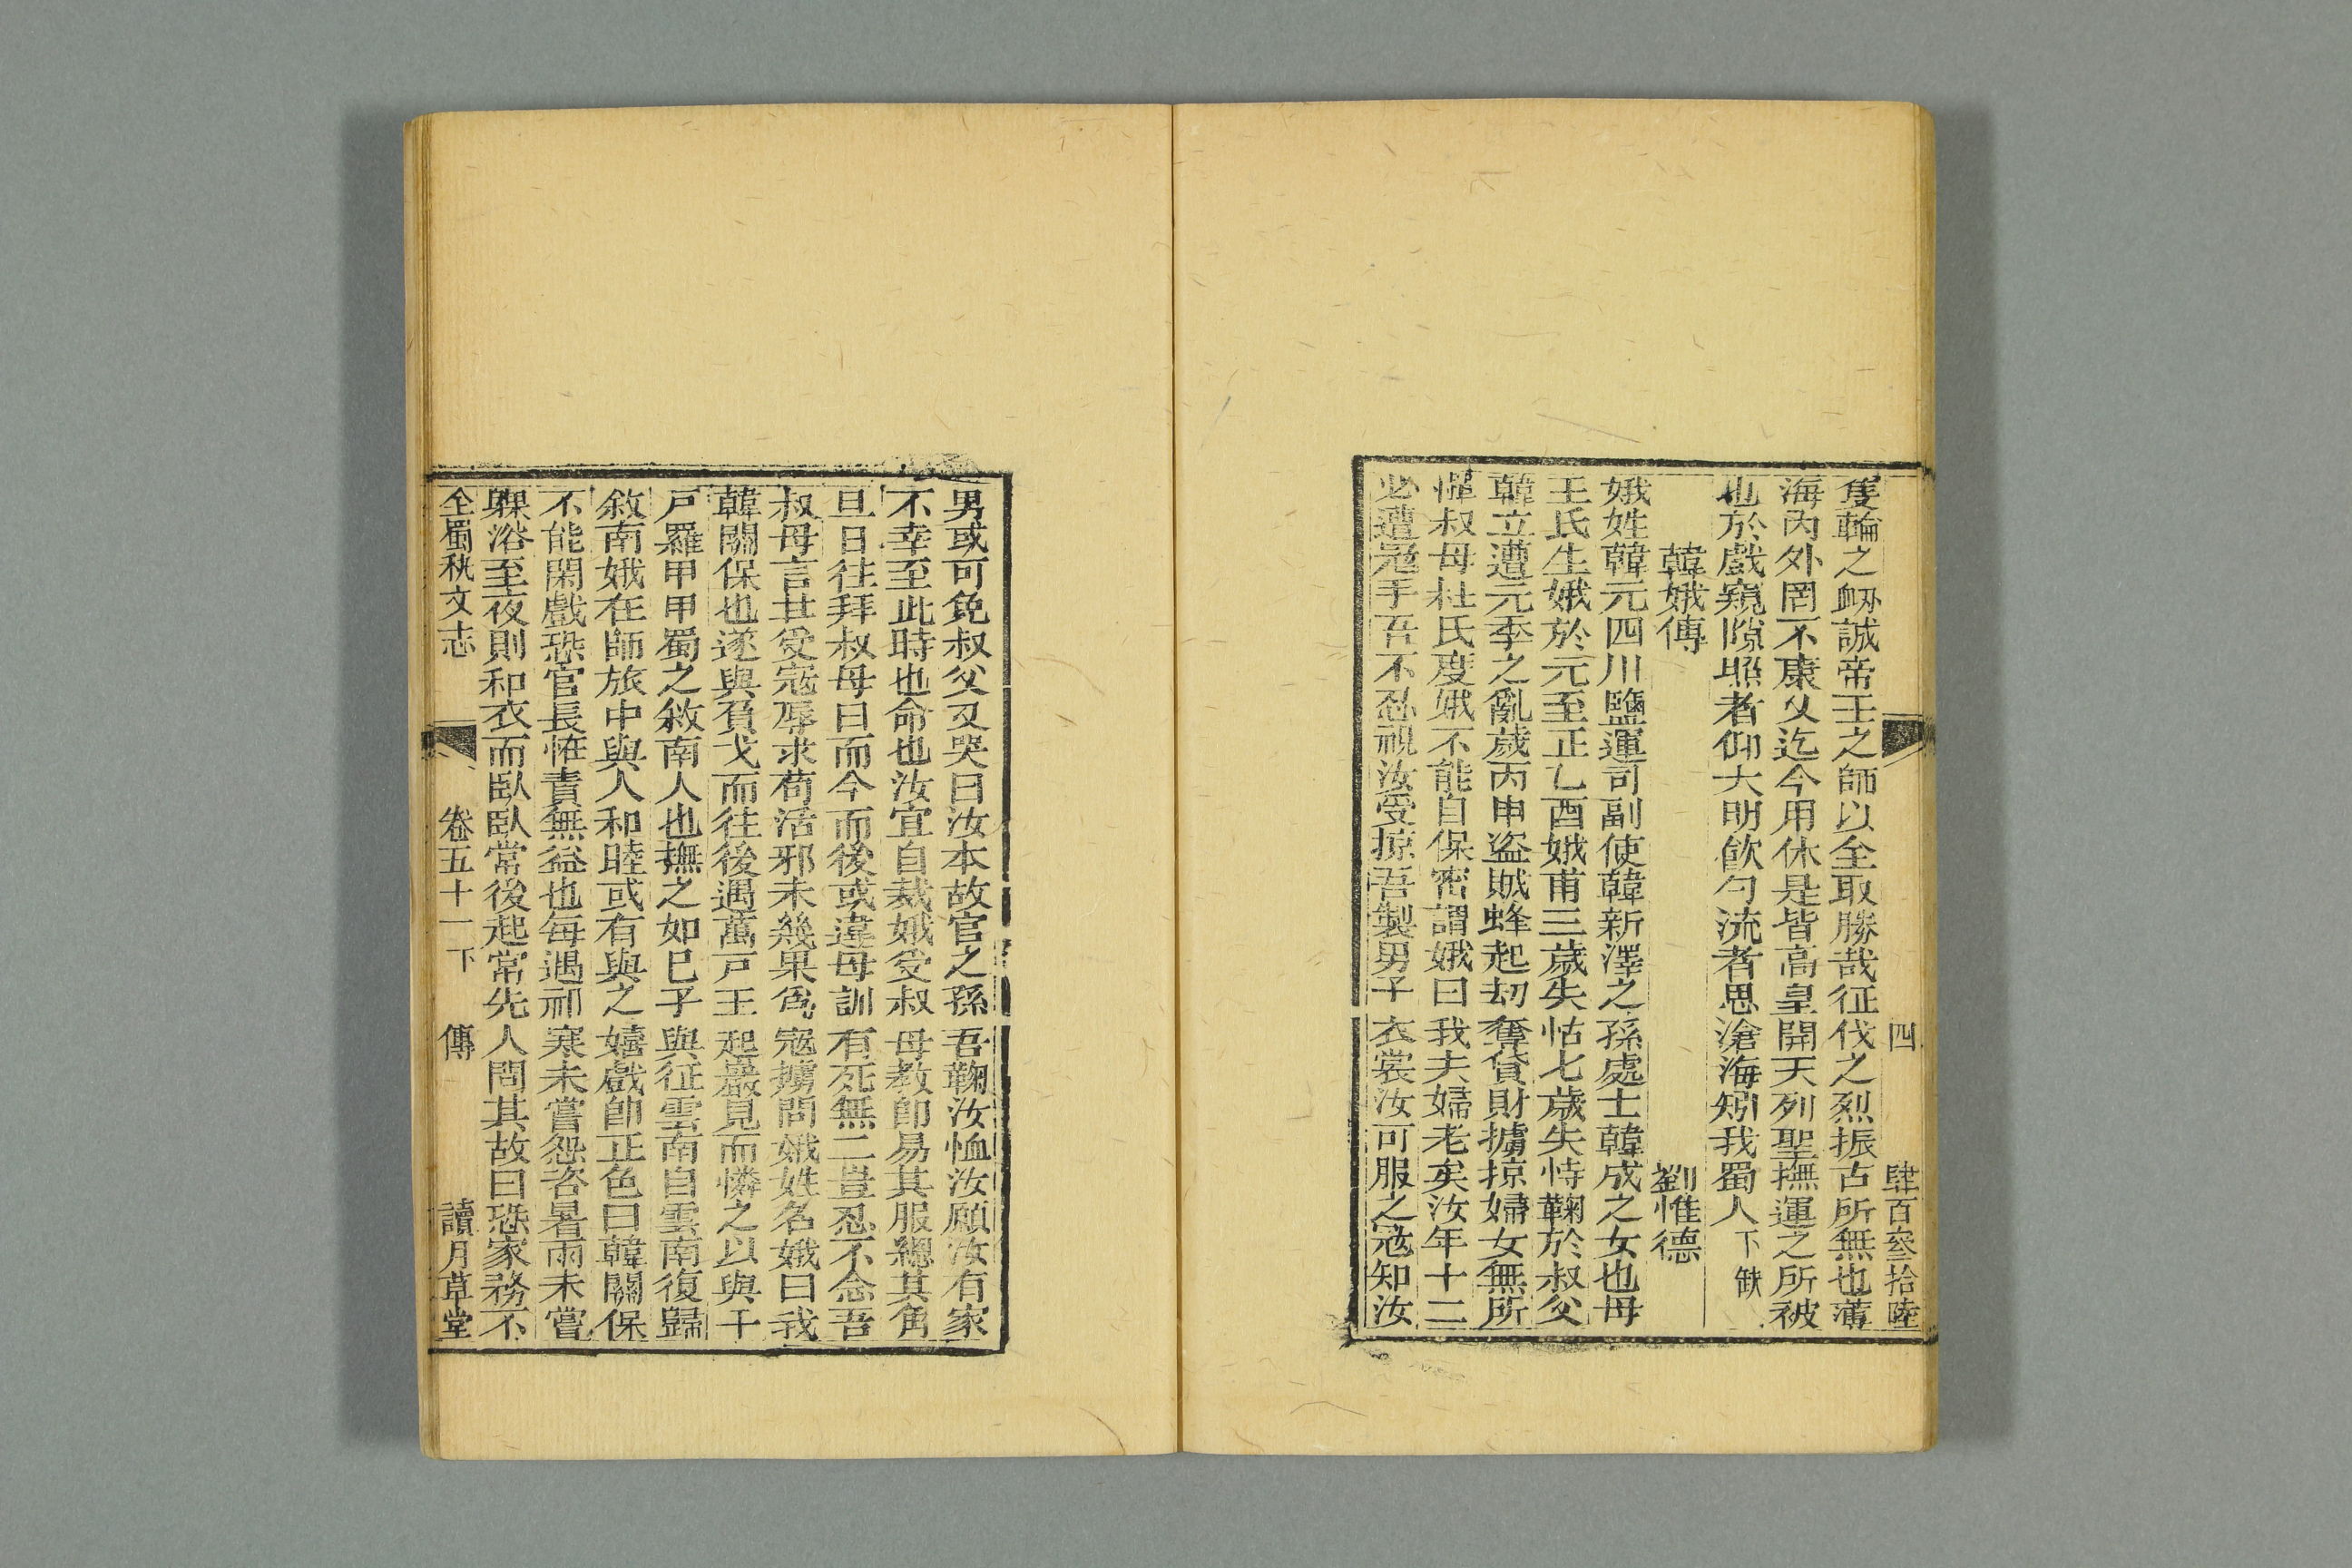 四　肆百叁拾陸
隻輪之衂誠帝王之師以全取勝哉征伐之烈振古所無也薄
海內外罔不康乂迄今用休是皆高皇開天列聖撫運之所被
也於戲窺隙照者仰大明飲勺流者思滄海矧我蜀人下缺
韓娥傳　劉惟德
娥姓韓元四川鹽運司副使韓新澤之孫處士韓成之女也母
王氏生娥於元至正乙酉娥甫三歲失怙七歲失恃鞠於叔父
韓立遭元季之亂歲丙申盜賊蜂起刼奪貨財擄掠婦女無所
憚叔母杜氏度娥不能自保密謂娥曰我夫婦老矣汝年十二
必遭寇手吾不忍視汝受掠吾製男子衣裳汝可服之寇知汝
男或可免叔父又哭曰汝本故官之孫吾鞠汝恤汝願汝有家
不幸至此時也命也汝宜自裁娥受叔母教卽易其服總其角
旦日往拜叔母曰而今而後或違母訓有死無二豈忍不念吾
叔母言甘受寇辱求苟活邪未幾果爲寇擄問娥姓名娥曰我
韓關保也遂與負戈而往後遇萬戸王起巖見而憐之以與千
戸羅甲甲蜀之敘南人也撫之如己子與征雲南自雲南復歸
敘南娥在師旅中與人和睦或有與之嬉戲卽正色曰韓關保
不能閑戲恐官長恠責無益也每遇祁寒未嘗怨咨暑雨未嘗
躶浴至夜則和衣而臥臥常後起常先人問其故曰恐家務不
全蜀秇文志　卷五十一下　傳　讀月草堂